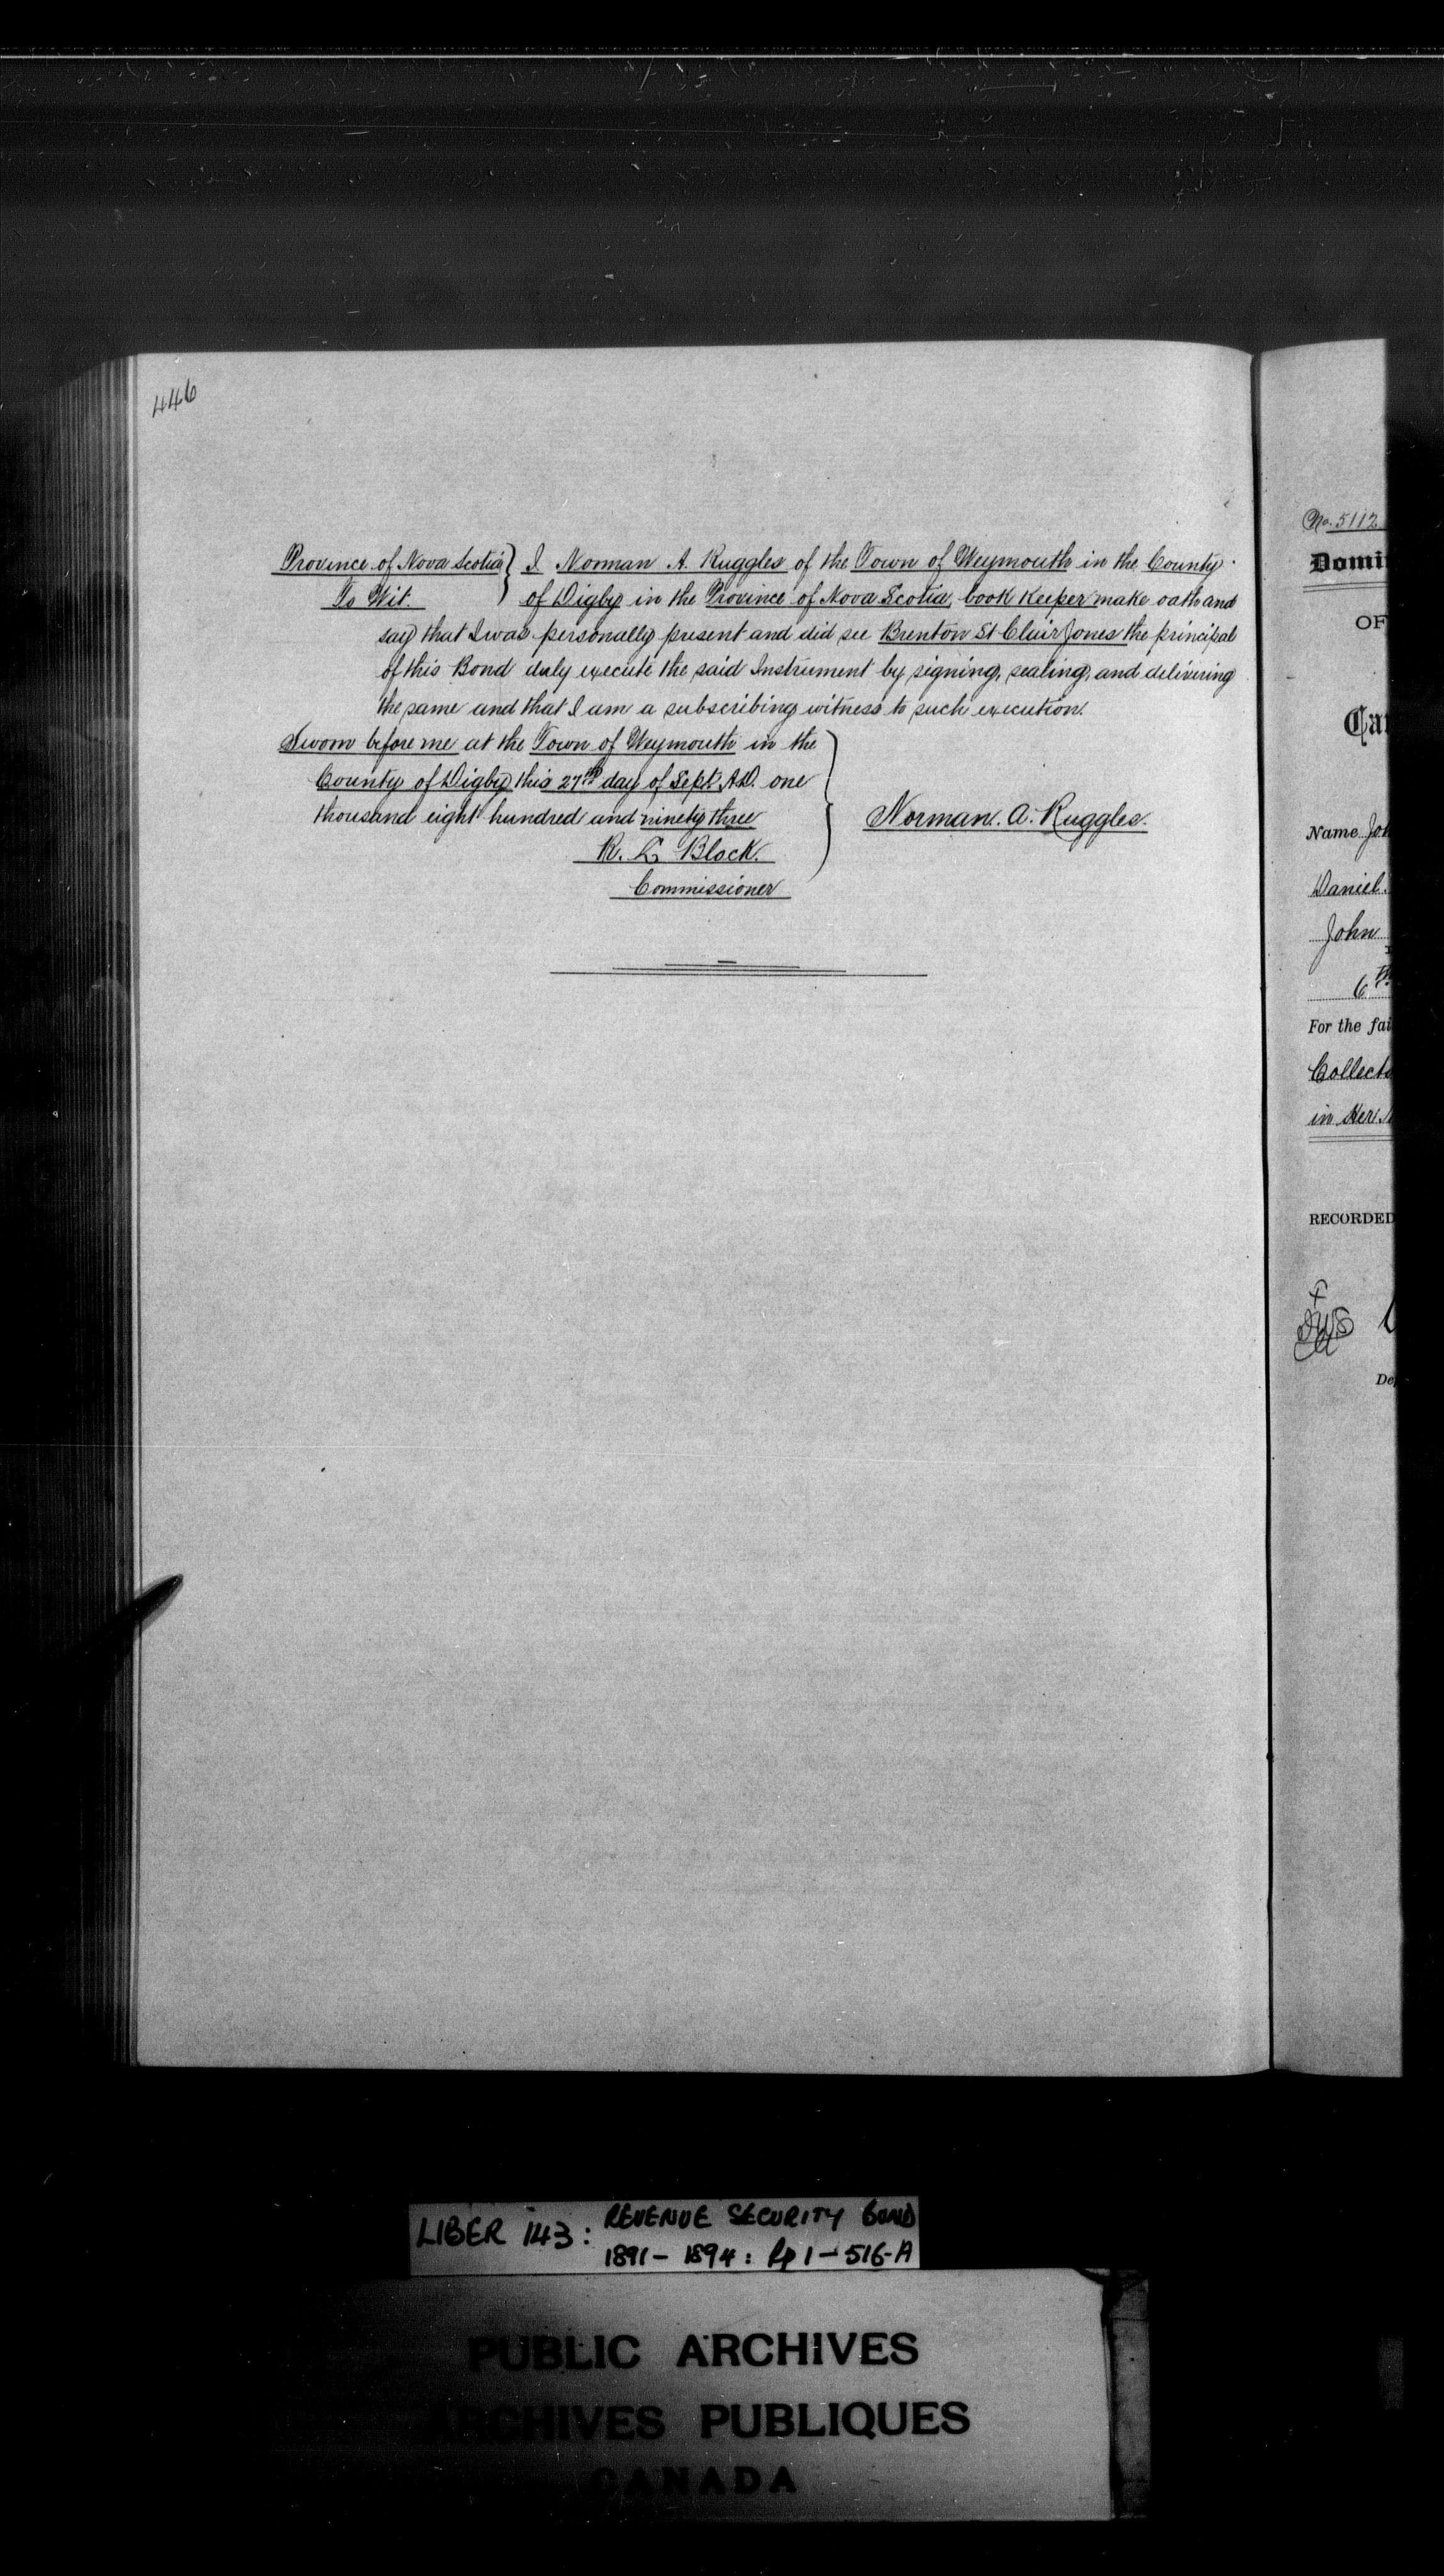 446
Province of Nova Scotia } I Norman A. Ruggles of the Town of Weymouth in the County
To Wit. } of Digby in the Province of Nova Scotia, book keeper make oath and
say that I was personally present and did see Brenton St Clair Jones the principal
of this Bond duly execute the said Instrument by signing, sealing, and delivering
the same and that I am a subscribing witness to such execution.
Sworn before me at the Town of Weymouth in the
County of Digby this 27th day of Sept. A.D. one
thousand eight hundred and ninety three
Norman. A. Ruggles.
R. Black.
Commissioner
No. 5112
Domi
OF
Ca
Name Joh
Daniel.
John
6th
For the fai
Collect
in Her
RECORDED
De
LIBER 143: REVENUE SECURITY BOND
1891 - 1894: Pp 1 - 516-A
PUBLIC ARCHIVES
ARCHIVES PUBLIQUES
CANADA